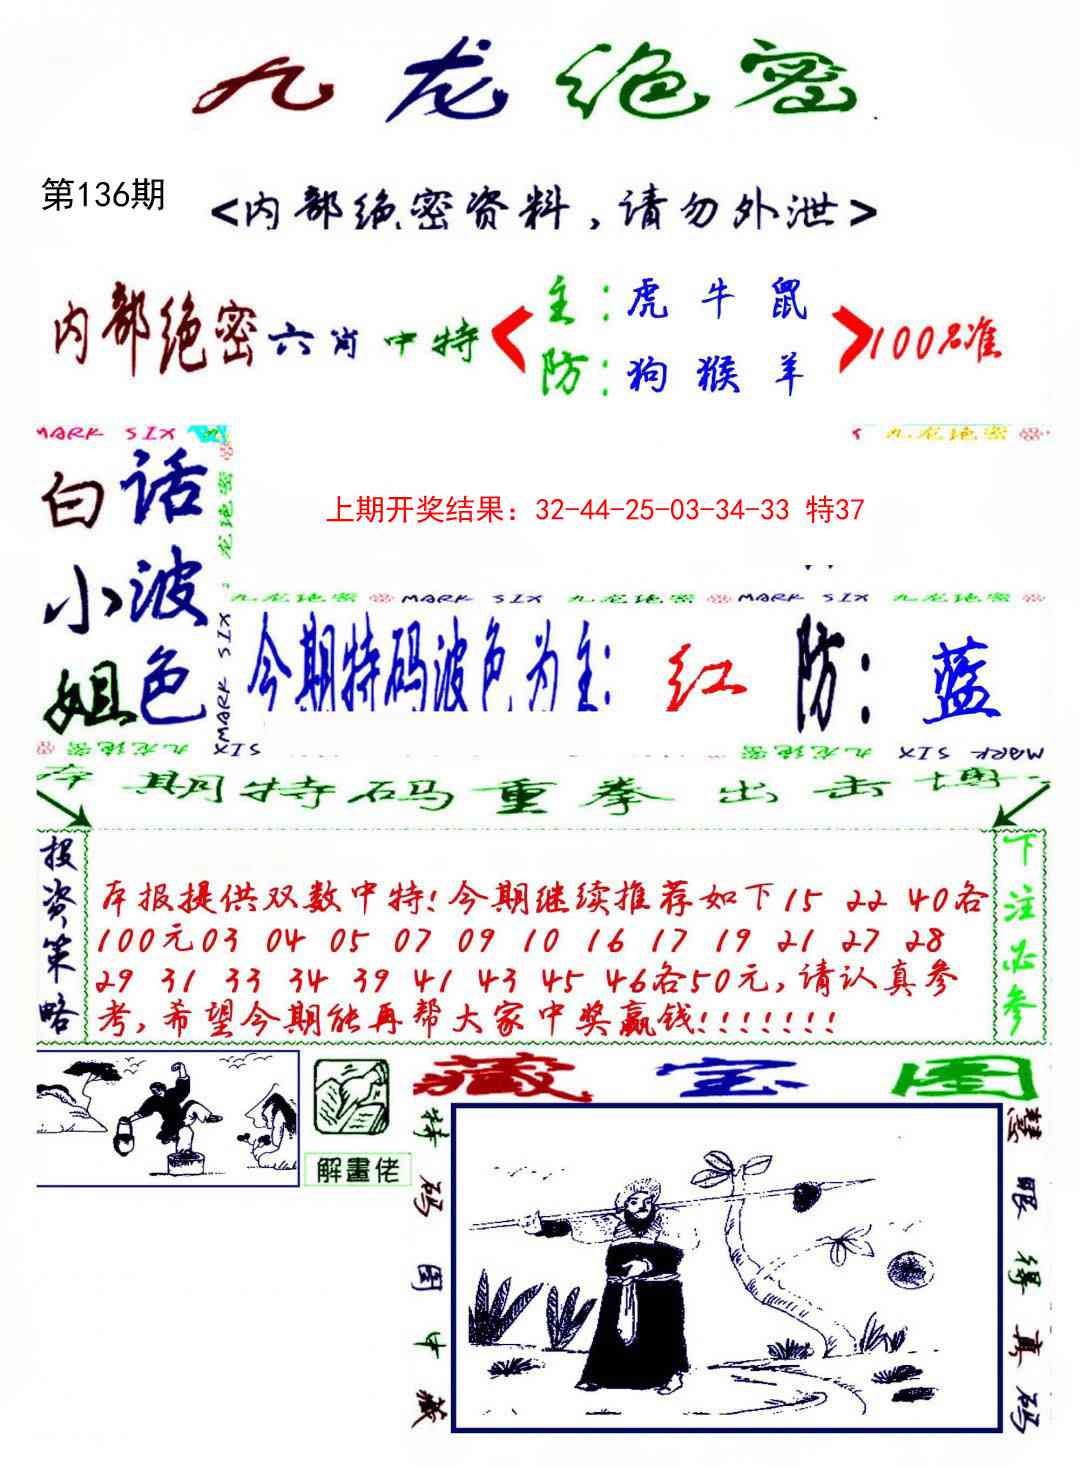 九龙绝密
第136期
<内部绝密资料,请勿外泄>
内部绝密六肖中特
主:虎牛鼠
防:狗猴羊
100%准
MARK SIX
九龙绝密
白话
小波
姐色
九龙绝密
MARK SIX
上期开奖结果：32-44-25-03-34-33 特37
九龙绝密 MARK SIX 九龙绝密 MARK SIX 九龙绝密
今期特码波色为主:红 防:蓝
九龙绝密 MARK SIX 九龙绝密 MARK SIX
本期特码重拳出击博
投资策略
本报提供双数中特!今期继续推荐如下15 22 40各
100元03 04 05 07 09 10 16 17 19 21 27 28
29 31 33 34 39 41 43 45 46各50元,请认真参
考,希望今期能再帮大家中奖赢钱!!!!!!!
下注必参
解畫佬
藏宝图
特码图中藏
慧眼得真码